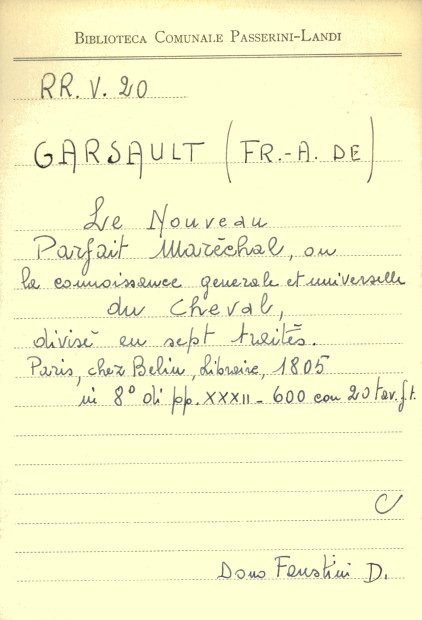 BIBLIOTECA COMUNALE PASSERINI-LANDI
RR. V. 20
GARSAULT (FR.-A. DE)
Le Nouveau
Parfait Maréchal, ou
la connoissance generale et universelle
du Cheval,
divisé en sept traités.
Paris, chez Belin, Libraire, 1805
in 8° di pp. XXXII-600 con 20 tav. f.t.
C
Dono Faustini D.